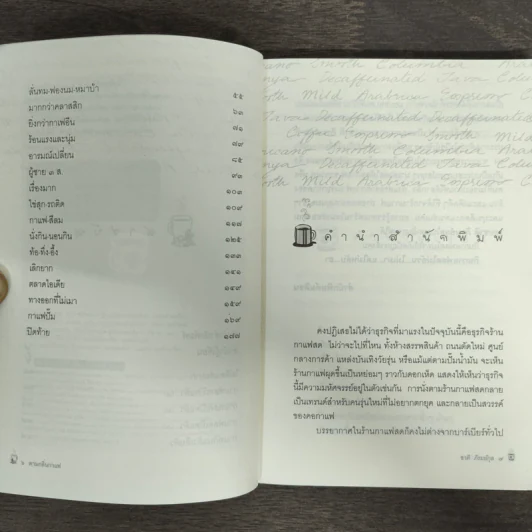 ลั่นทม·ฟองนม·หมาบ้า ๕๕
มากกว่าคลาสสิก ๖๓
ยิ่งกว่ากาแฟอื่น ๗๑
ร้อนแรงและนุ่ม ๗๙
อารมณ์เปลี่ยน ๘๕
ผู้ชาย ๓ ส. ๙๓
เรื่องมาก ๑๐๓
ไข่สุก·รถติด ๑๐๙
กาแฟ·สีลม ๑๑๗
นั่งกิน·นอนกิน ๑๒๕
ท้อ·ทึ่ง·อึ้ง ๑๓๓
เลิกยาก ๑๔๑
ตลาดไอเดีย ๑๕๑
ทางออกที่ไม่เมา ๑๕๙
กาแฟปั๊ม ๑๖๙
ปิดท้าย ๑๗๗
Smooth Columbia
Decaffeinated Java Columbia
Mild Arabian Espresso
Java Decaffeinated Decaffeinated
Coffee Espresso Smooth Mild
Smooth Columbia
Decaffeinated Java
Mild Arabian Espresso
คำนำสำนักพิมพ์
คงปฏิเสธไม่ได้ว่าธุรกิจที่มาแรงในปัจจุบันนี้คือธุรกิจร้าน
กาแฟสด ไม่ว่าจะไปที่ไหน ทั้งห้างสรรพสินค้า ถนนตัดใหม่ ศูนย์
กลางการค้า แหล่งบันเทิงวัยรุ่น หรือแม้แต่ตามปั๊มน้ำมัน จะเห็น
ร้านกาแฟผุดขึ้นเป็นหย่อมๆ ราวกับดอกเห็ด แสดงให้เห็นว่าธุรกิจ
นี้มีความมหัศจรรย์อยู่ในตัวเช่นกัน การนั่งตามร้านกาแฟสดกลาย
เป็นเทรนด์สำหรับคนรุ่นใหม่ที่ไม่อยากตกยุค และกลายเป็นสวรรค์
ของคอกาแฟ
บรรยากาศในร้านกาแฟสดก็คงไม่ต่างจากบาร์เบียร์ทั่วไป